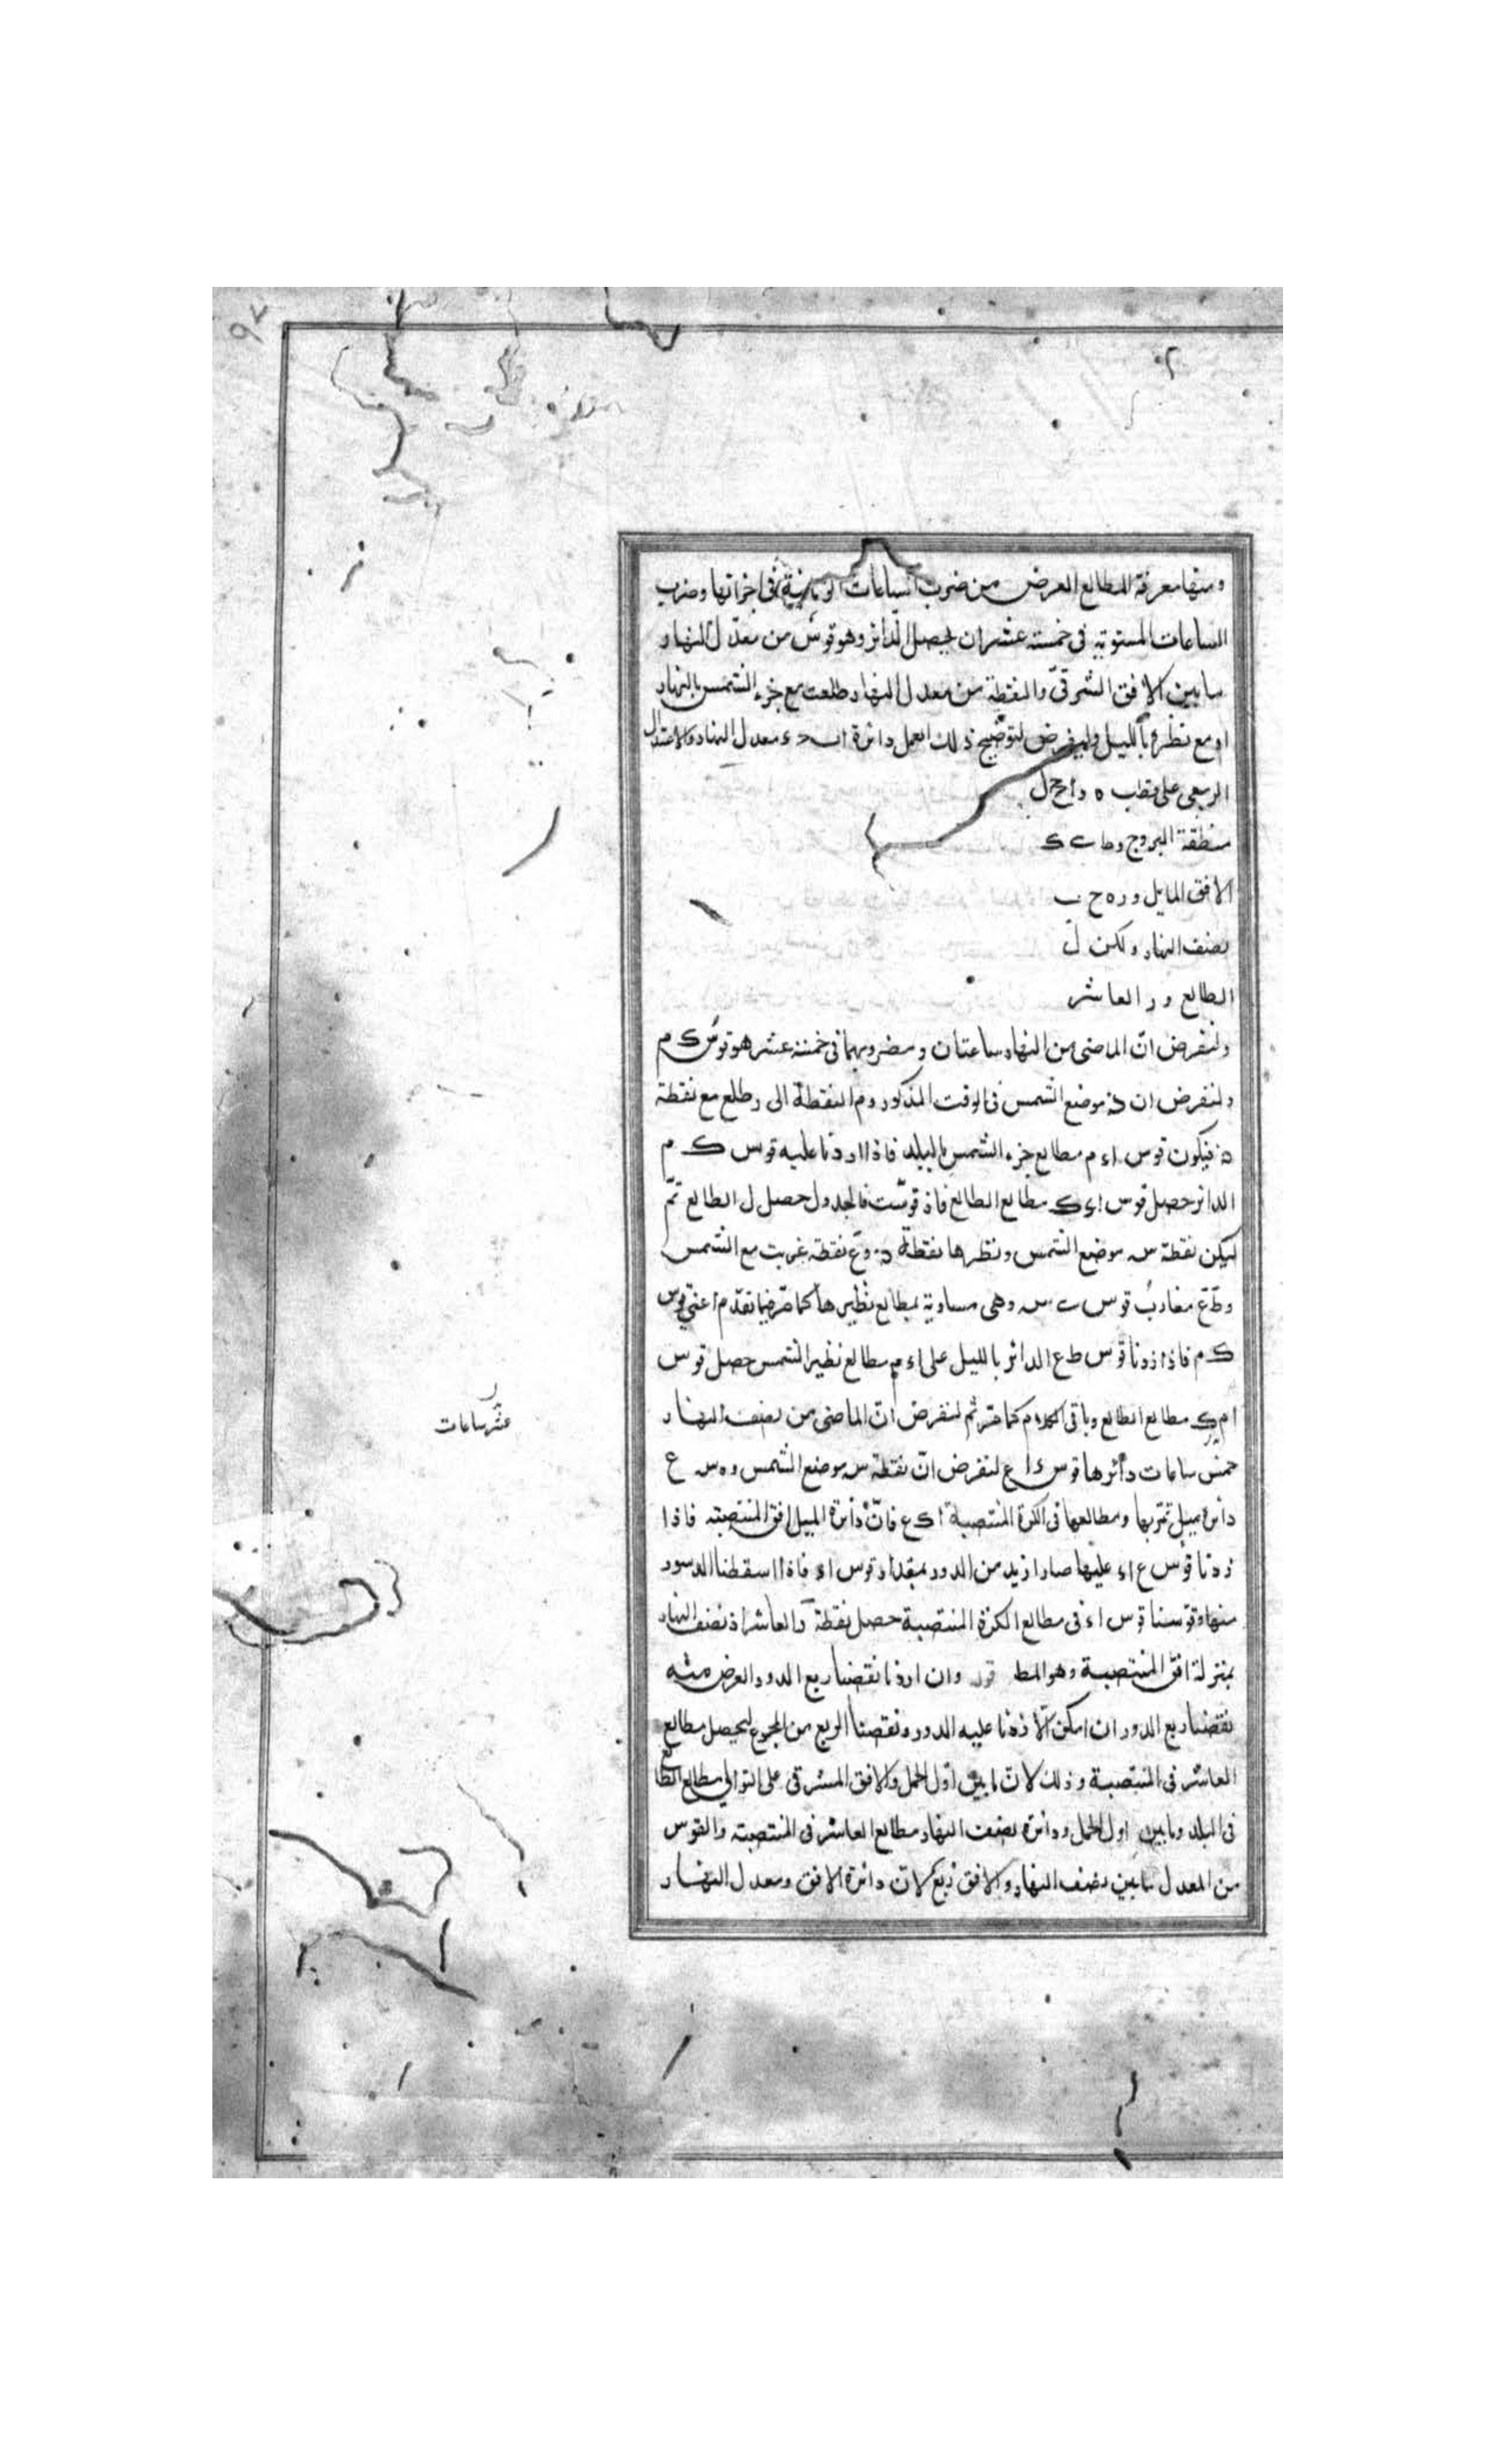 ومنها معرفة المطالع العرض من ضرب الساعات الزمانية فى اجزائها وضرب
الساعات المستوية فى خمسة عشر ان يحصل الدائر وهو قوس من معدل النهار
ما بين الافق الشرقى والنقطة من معدل النهار طلعت مع جزء الشمس بالنهار
او مع نظره بالليل وليفرض لتوضيح ذلك العمل دائرة ا ب ح ء معدل النهار والاعتدال
الربيعى على قطب ه و ا ح ل
منطقة البروج و ط ب ك
الافق المايل و ر ه ح ب
نصف النهار وليكن ل
الطالع و ر العاشر
ولنفرض ان الماضى من النهار ساعتان ومضروبهما فى خمسة عشر هو قوس ك م
ولنفرض ان د موضع الشمس فى الوقت المذكور و م النقطة الى رطلع مع نقطة
د فيكون قوس ا ء م مطالع جزء الشمس بالبلد فاذا اردنا عليه قوس ك م
الدائر حصل قوس ا ء ك مطالع الطالع فاذ قوست فالجدول حصل ل الطالع تم
ليكن نقطة س موضع الشمس ونظرها نقطة د و ع نقطة غربت مع الشمس
و ط ع مغارب قوس ب س وهى مساوية بمطالع نظيرها كما مر فيما تقدم اعنى قوس
ك م فاذا زدنا قوس ط ع الدائر بالليل على ا ء م مطالع نظير الشمس حصل قوس
ا م ك مطالع الطالع وباقى الكلام كما مر ثم لنفرض ان الماضى من نصف النهار
عشر ساعات
خمس ساعات دائرها قوس ء ا ع لنفرض ان نقطة س موضع الشمس و ه س ع
دائرة ميل تمر بها ومطالعها فى الكرة المنتصبة ا ك ع فان دائرة الميل افق المنتصبة فاذا
زدنا قوس ع ا ء عليها صار ازيد من الدور بمقدار قوس ا ء فاذا اسقطنا الدور
منها وقوسنا قوس ا ء فى مطالع الكرة المنتصبة حصل نقطة ر العاشر اذ نصف النهار
بمنزلة افق المنتصبة وهو المط قوله وان اردنا نقضنا ربع الدور العرض منه
نقضنا ربع الدور ان امكن والا زدنا عليه الدور ونقصنا الربع من المجموع ليحصل مطالع
العاشر فى المنتصبة وذلك لان ما بين اول الحمل والافق المشرقى على التوالى مطالع الطالع
فى البلد وما بين اول الحمل ودائرة نصف النهار مطالع العاشر فى المنتصبة والقوس
من المعدل ما بين نصف النهار والافق ربع لان دائرة الافق ومعدل النهار